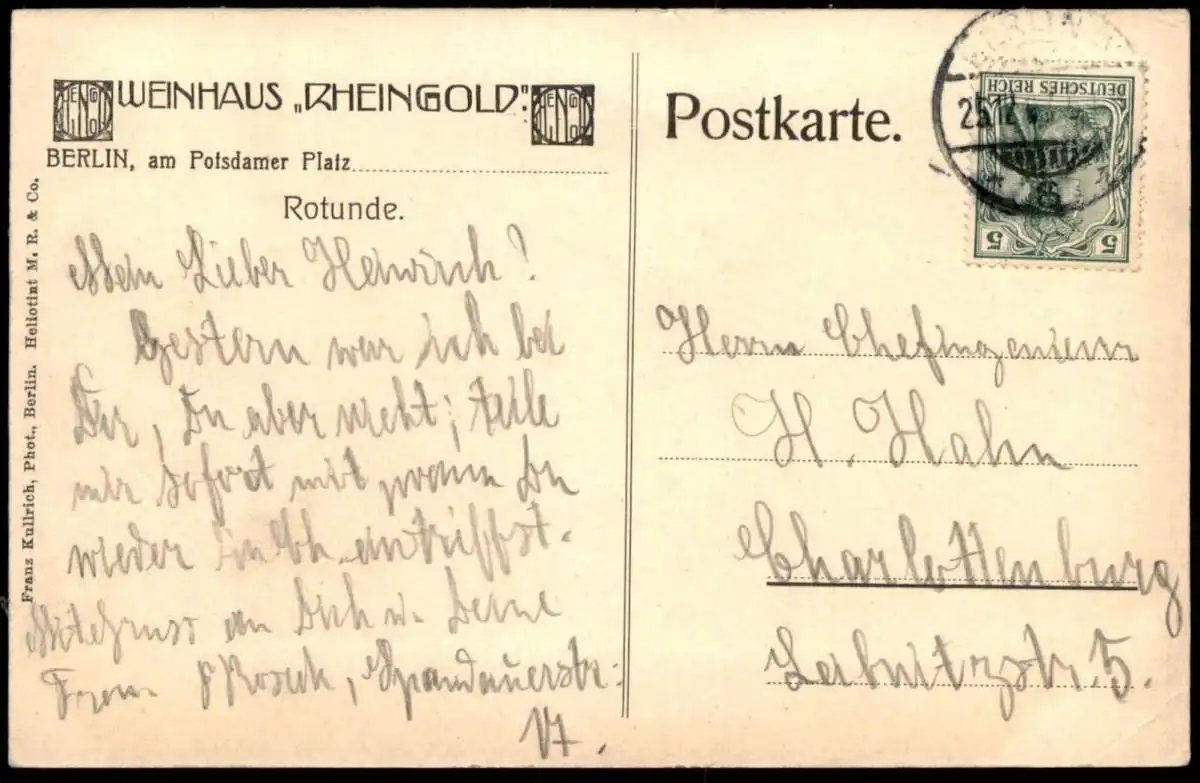 WEINHAUS „RHEINGOLD".
BERLIN, am Potsdamer Platz
Rotunde.
Mein Lieber Heinrich!
Gestern war ich bei
Dir, Du aber nicht; teile
mir sofort mit wann Du
wieder in Ch. eintriffst.
Mit Gruss an Dich u. Deine
Frau. Spandauerstr.
17.
Franz Kullrich, Phot., Berlin. Heliotint M. R. & Co.
Postkarte.
BERLIN
25.12
DEUTSCHES REICH
5 5
Herrn Chefingenieur
H. Hahn
Charlottenburg
Leibnitzstr. 5.